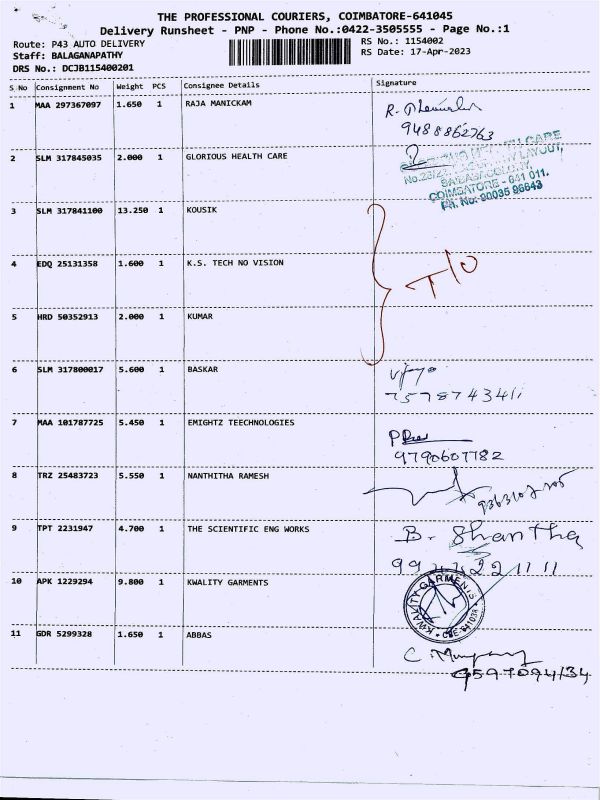 THE PROFESSIONAL COURIERS, COIMBATORE-641045
Delivery Runsheet - PNP - Phone No.:0422-3505555 - Page No.:1
Route: P43 AUTO DELIVERY
RS No.: 1154002
Staff: BALAGANAPATHY
RS Date: 17-Apr-2023
DRS No.: DCJB115400201
S No Consignment No Weight PCS Consignee Details Signature
1 MAA 297367097 1.650 1 RAJA MANICKAM
9488862763
2 SLM 317845035 2.000 1 GLORIOUS HEALTH CARE
HEALTH CARE
LAYOUT,
SAIBABA COLONY,
COIMBATORE - 641 011.
Ph. No: 90035 96643
3 SLM 317841100 13.250 1 KOUSIK
4 EDQ 25131358 1.600 1 K.S. TECH NO VISION
T/O
5 HRD 50352913 2.000 1 KUMAR
6 SLM 317800017 5.600 1 BASKAR
7 MAA 101787725 5.450 1 EMIGHTZ TEECHNOLOGIES
9790607782
8 TRZ 25483723 5.550 1 NANTHITHA RAMESH
9 TPT 2231947 4.700 1 THE SCIENTIFIC ENG WORKS
B. Shantha
10 APK 1229294 9.800 1 KWALITY GARMENTS
KWALITY GARMENTS
11 GDR 5299328 1.650 1 ABBAS